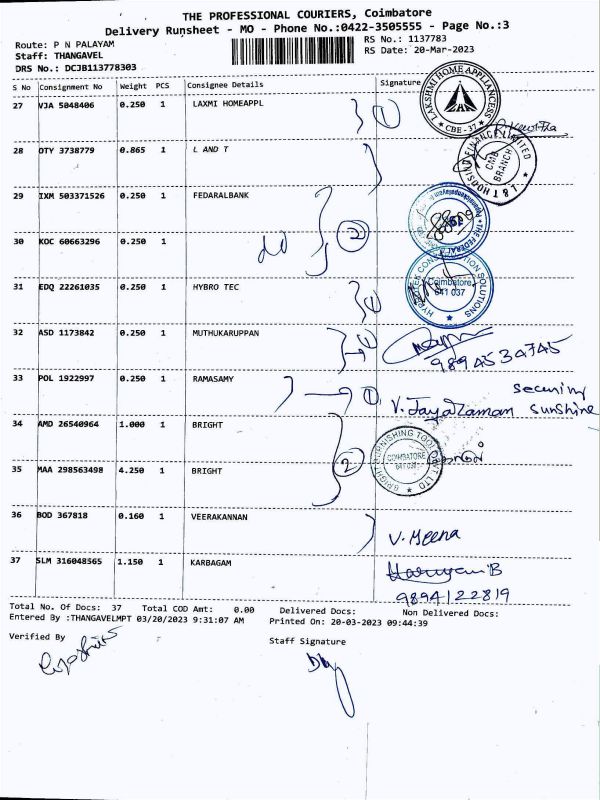 THE PROFESSIONAL COURIERS, Coimbatore
Delivery Runsheet - MO - Phone No.:0422-3505555 - Page No.:3
Route: P N PALAYAM
RS No.: 1137783
Staff: THANGAVEL
RS Date: 20-Mar-2023
DRS No.: DCJB113778303
S No Consignment No Weight PCS Consignee Details Signature
LAKSHMI HOME APPLIANCESS
* CBE-37 *
27 VJA 5048406 0.250 1 LAXMI HOMEAPPL 1
28 OTY 3738779 0.865 1 L AND T
CMB BRANCH
29 IXM 503371526 0.250 1 FEDARALBANK
2
30 KOC 60663296 0.250 1
31 EDQ 22261035 0.250 1 HYBRO TEC 1
Coimbatore
641 037
32 ASD 1173842 0.250 1 MUTHUKARUPPAN 1
9894534745
33 POL 1922997 0.250 1 RAMASAMY 1
V. Jayaraman sunshine
34 AMD 26540964 1.000 1 BRIGHT
2
COIMBATORE
641 037
35 MAA 298563498 4.250 1 BRIGHT
36 BOD 367818 0.160 1 VEERAKANNAN
V. Meena
37 SLM 316048565 1.150 1 KARBAGAM
9894122819
Total No. Of Docs: 37 Total COD Amt: 0.00 Delivered Docs: Non Delivered Docs:
Entered By :THANGAVELMPT 03/20/2023 9:31:07 AM Printed On: 20-03-2023 09:44:39
Verified By Staff Signature